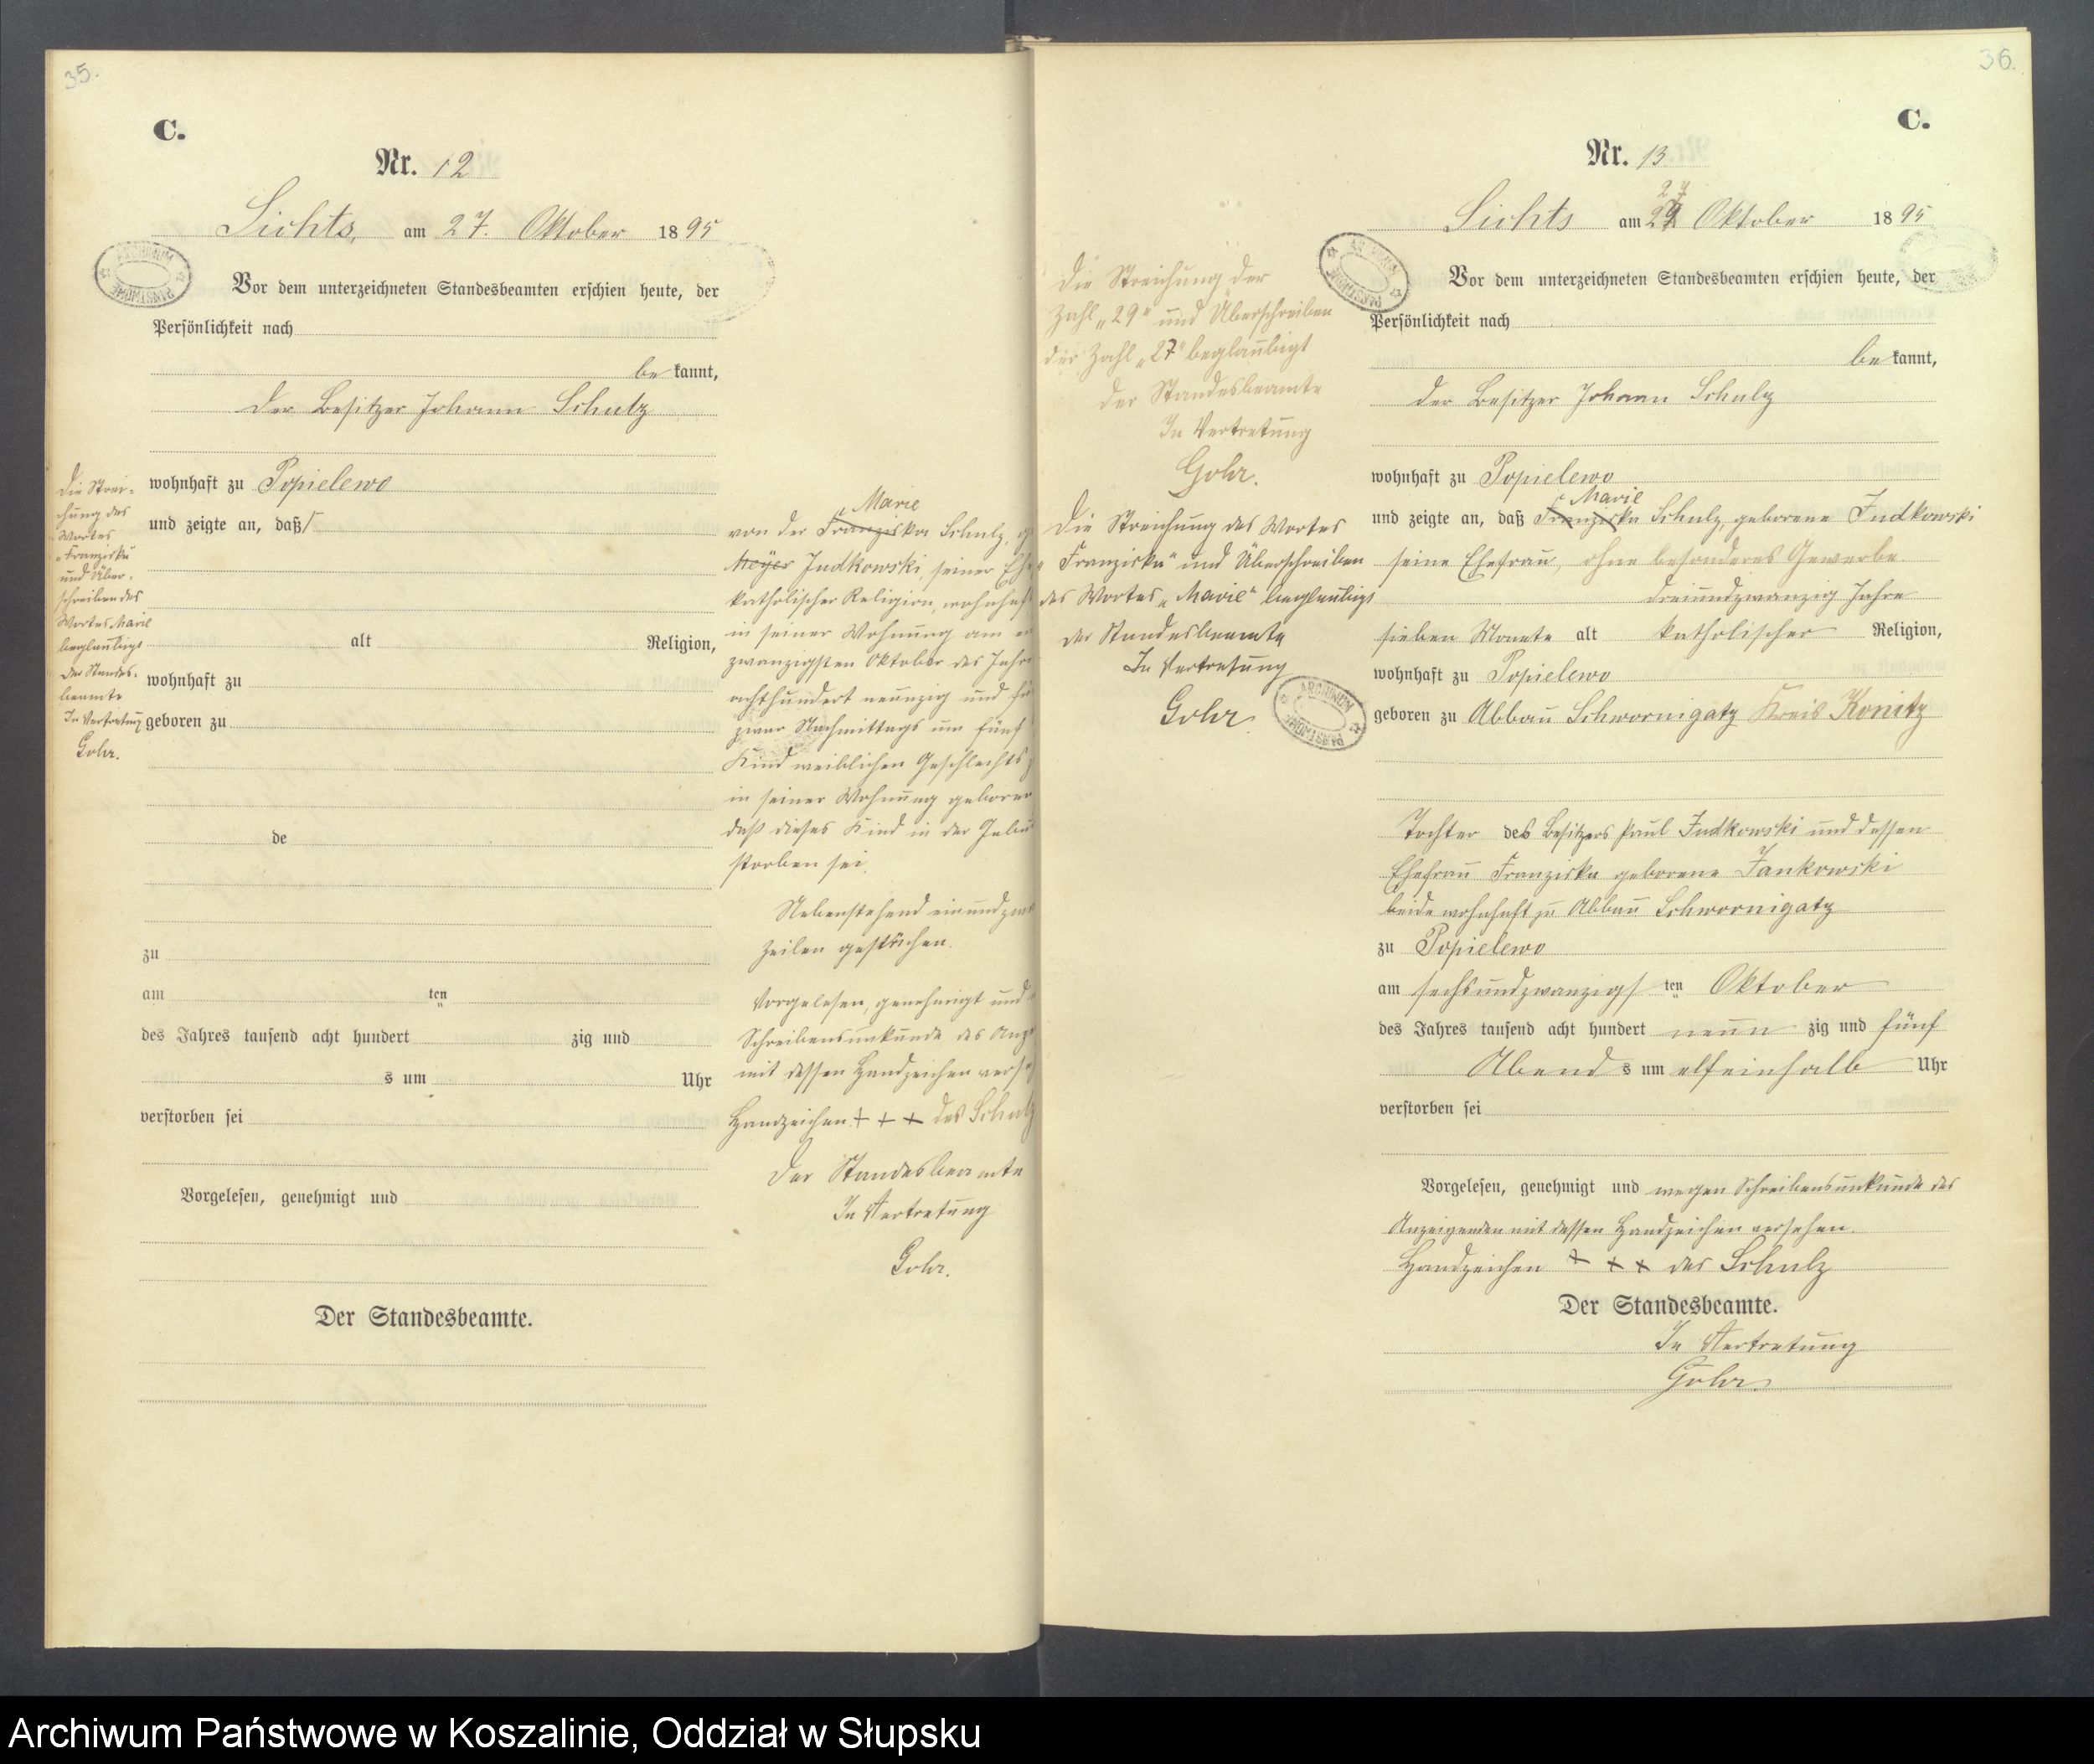 35.
C.
Nr. 12
Sichts, am 27. Oktober 1895
Vor dem unterzeichneten Standesbeamten erschien heute, der
Persönlichkeit nach
be kannt,
der Besitzer Johann Schulz
wohnhaft zu Popielewo
und zeigte an, daß
alt Religion,
wohnhaft zu
geboren zu
de
zu
am ten
des Jahres tausend acht hundert zig und
s um Uhr
verstorben sei
Vorgelesen, genehmigt und
Der Standesbeamte.
Die Strei-
chung des
Wortes
„Franziska“
und Über-
schreiben des
Wortes Marie
beglaubigt
Der Standes-
beamte
In Vertretung
Gohr.
Marie
von der Franziska Schulz, g
Meyer Judkowski, seiner Ehe
katholischer Religion, wohnhaft
in seiner Wohnung am
zwanzigsten Oktober des Jahre
achthundert neunzig und fü
zwar Nachmittags um fünf
Kind weiblichen Geschlechts
in seiner Wohnung geboren
daß dieses Kind in der Gebu
storben sei.
Nebenstehend einundzwa
Zeilen gestrichen.
Vorgelesen, genehmigt und
Schreibensunkunde des Anz
mit dessen Handzeichen verse
Handzeichen + + + des Schulz
Der Standesbeamte
In Vertretung
Gohr.
36.
C.
Nr. 13
27
Sichts am 29 Oktober 1895
Vor dem unterzeichneten Standesbeamten erschien heute, der
Persönlichkeit nach
be kannt,
der Besitzer Johann Schulz
wohnhaft zu Popielewo
Marie
und zeigte an, daß Franziska Schulz geborene Judkowski
seine Ehefrau, ohne besonderes Gewerbe
dreiundzwanzig Jahre
sieben Monate alt katholischer Religion,
wohnhaft zu Popielewo
geboren zu Abbau Schwornigatz Kreis Konitz
Tochter des Besitzers Paul Judkowski und dessen
Ehefrau Franziska geborene Jankowski
beide wohnhaft zu Abbau Schwornigatz
zu Popielewo
am sechsundzwanzigs ten Oktober
des Jahres tausend acht hundert neun zig und fünf
Abend s um elfeinhalb Uhr
verstorben sei
Vorgelesen, genehmigt und wegen Schreibensunkunde des
Anzeigenden mit dessen Handzeichen versehen.
Handzeichen + + + des Schulz
Der Standesbeamte.
In Vertretung
Gohr.
Die Streichung der
Zahl „29“ und Überschreiben
der Zahl „27“ beglaubigt
Der Standesbeamte
In Vertretung
Gohr.
Die Streichung des Wortes
„Franziska“ und Überschreiben
des Wortes „Marie“ beglaubigt
Der Standesbeamte
In Vertretung
Gohr.
Archiwum Państwowe w Koszalinie, Oddział w Słupsku